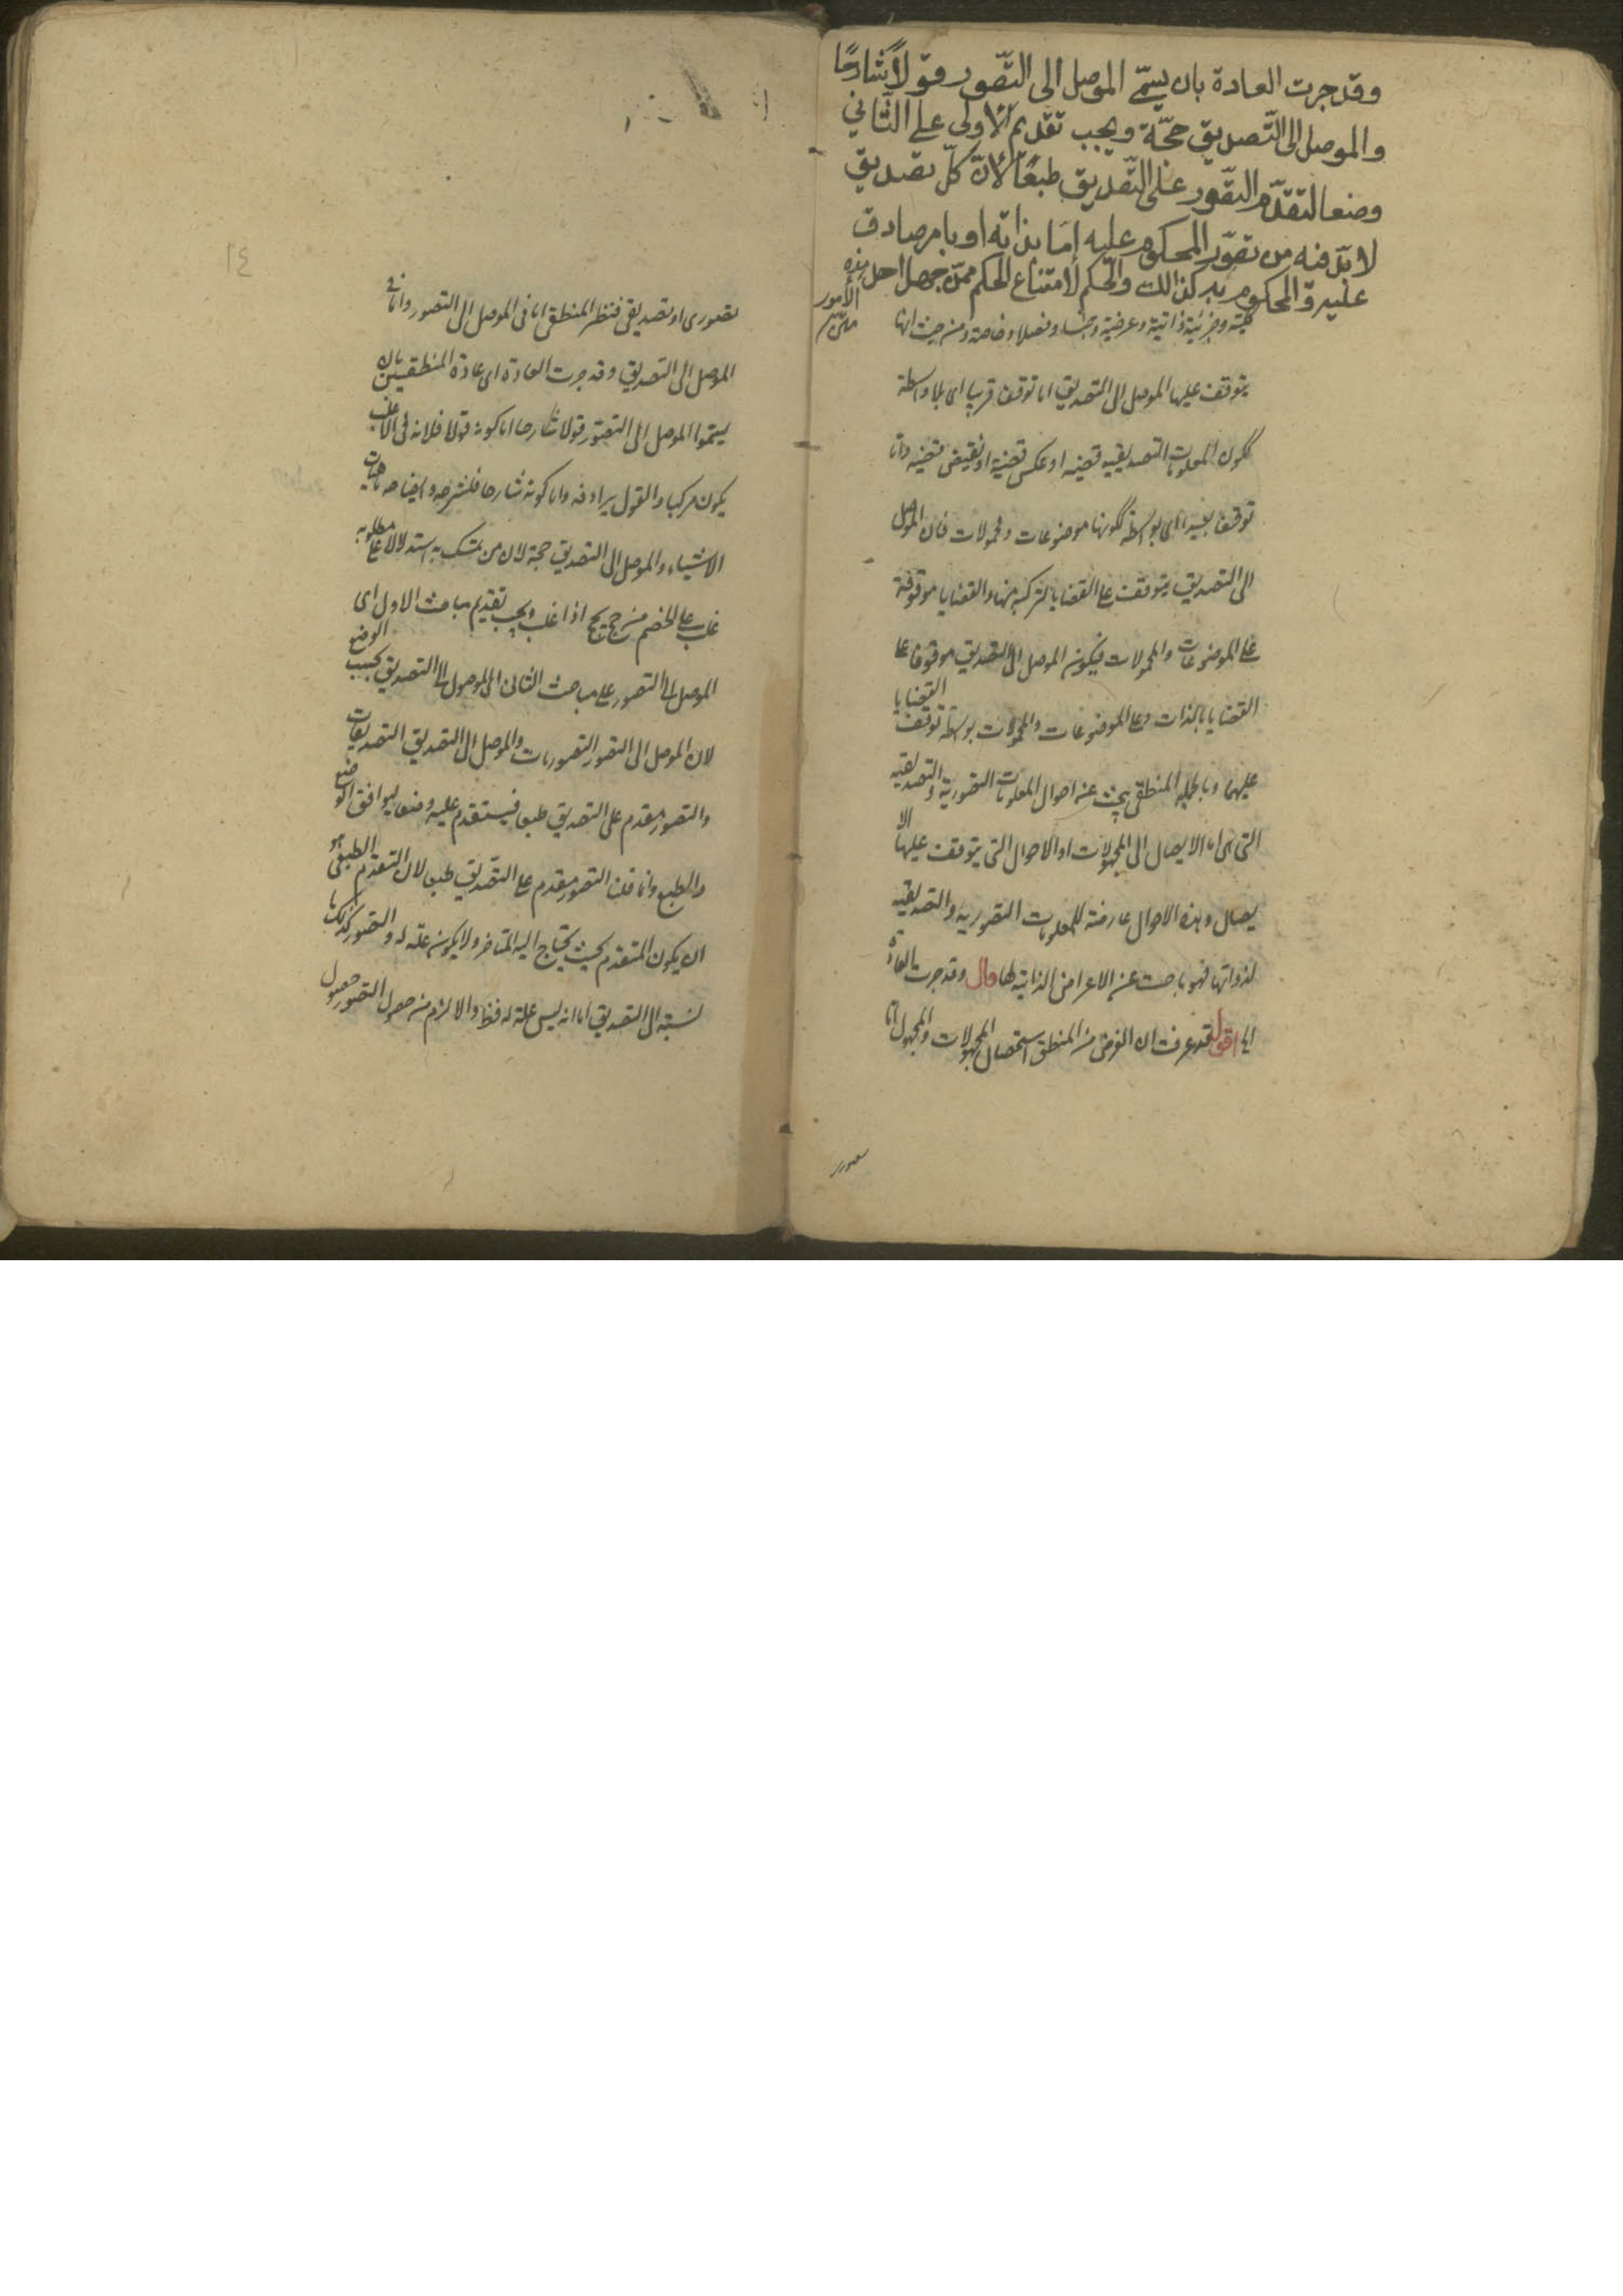 وقد جرت العادة بان يسمّى الموصل الى التّصور قولاً شارحًا
والموصل الى التّصديق حجّة ويجب تقديم الاولى على الثّاني
وضعا لتقدّم التصّور على التّصديق طبعًا لانّ كلّ تصديق
لا بدّ فيه من تصوّر المحكوم عليه إمّا بذاته او بامر صادق
عليه والمحكوم به كذالك والحكم لامتناع الحكم ممّن جهل احد هذه
الأمور
كلية وجزئية ذاتية وعرضية وجنسا وفصلا وخاصة ومن حيث انها
يتوقف عليها الموصل الى التصديق اما توقفا قريبا اى بلا واسطة
ككون المعلومات التصديقيه قضيه او عكس قضية او نقيض قضيه واما
توقفا بعيدا اى بواسطة ككونها موضوعات ومحمولات فان الموصل
الى التصديق يتوقف على القضايا لتركبه منها والقضايا موقوفة
على الموضوعات والمحمولات فيكون الموصل الى التصديق موقوفا على
القضايا بالذات وعلى الموضوعات والمحمولات بواسطة توقف القضايا
عليها وبالجمله المنطقى يبحث عن احوال المعلومات التصورية والتصديقيه
التى هى اما الايصال الى المجهولات او الاحوال التى يتوقف عليها الا
يصال وهذه الاحوال عارضة للمعلومات التصورية والتصديقيه
لذواتها فهو باحث عن الاعراض الذاتية لها قال وقد جرت العادة
اقول قد عرفت ان الغرض من المنطق استحصال المجهولات والمجهول اما
تصورى او تصديقى فنظر المنطقى اما فى الموصل الى التصور واما فى
الموصل الى التصديق وقد جرت العادة اى عادة المنطقيين بان
يسموا الموصل الى التصور قولا شارحا اما كونه قولا فلانه فى الاغلب
يكون مركبا والقول يرادفه واما كونه شارحا فلشرحه وايضاحه ماهيات
الاشياء والموصل الى التصديق حجة لان من تمسك به استدلالا على مطلوبه
غلب على الخصم من حج يحج اذا غلب ويجب تقديم مباحث الاول اى
الموصل الى التصور على مباحث الثانى اى الموصول الى التصديق بحسب الوضع
لان الموصل الى التصور التصورات والموصل الى التصديق التصديقات
والتصور مقدم على التصديق طبعا فيستقدم عليه وضعا ليوافق الوضع
والطبع وانما قلنا التصور مقدم على التصديق طبعا لان التقدم الطبعى هو
ان يكون المتقدم بحيث يحتاج اليه المتاخر ولا يكون علة له والتصور كذلك با
لنسبة الى التصديق اما انه ليس علة له فظ والا لزم من حصول التصور حصول
١٤